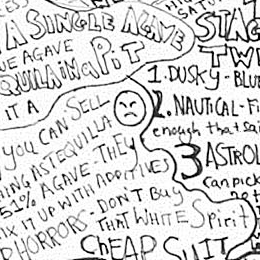 A SINGLE AGAVE
UE AGAVE
QUILA in a PiT
IT A
YOU CAN SELL
ING AS TEQUILLA
51% AGAVE - THEY
IX IT UP WITH ADDITIVES
HORRORS - DON'T BUY
THAT WHITE Spirit
CHEAP SUIT
STAG
TW
1. DUSKY - BLU
2. NAUTICAL - Fi
enough that sai
3 ASTROL
can pick